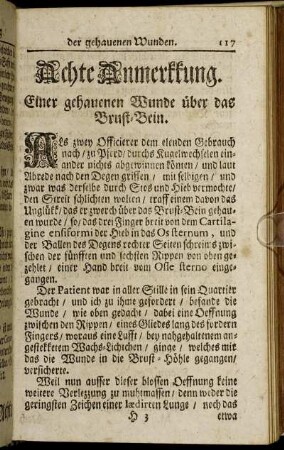 der gehauenen Wunden. 117
Achte Anmerkkung.
Einer gehauenen Wunde über das
Brust-Bein.
Als zwey Officierer dem elenden Gebrauch
nach / zu Pferd / durchs Kugelwechselen ein-
ander nichts abgewinnen können / und laut
Abrede nach den Degen griffen / mit selbigen / und
zwar was derselbe durch Stos und Hieb vermochte /
den Streit schlichten wolten / traff einem davon das
Unglükk / das er zwerch über das Brust-Bein gehau-
en wurde / so / das drei Finger breit von dem Cartila-
gine ensiformi der Hieb in das Os sternum, und
der Ballen des Degens rechter Seiten schreins zwi-
schen der fünfften und sechsten Rippen von oben ge-
zehlet / einer Hand breit vom Osse sterno einge-
gangen.
Der Patient war in aller Stille in sein Quartier
gebracht / und ich zu ihme gefordert / befande die
Wunde / wie oben gedacht / dabei eine Oeffnung
zwischen den Rippen / eines Gliedes lang des fordern
Fingers / woraus eine Lufft / bey nahgehaltenem an-
gestekktem Wachs-Lichtchen / ginge / welches mir
das die Wunde in die Brust-Höhle gegangen /
versicherte.
Weil nun ausser dieser blossen Oeffnung keine
weitere Verletzung zu muhtmassen / denn weder die
geringsten Zeichen einer lædirten Lunge / noch das
H 3 etwa